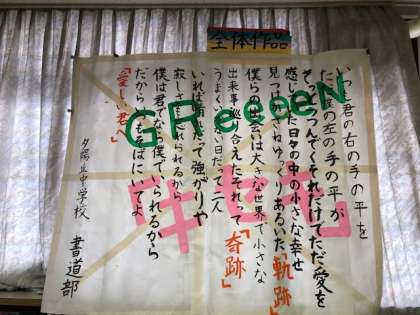 全体作品
いつも君の右の手の平を
ただ僕の左の手の平が
そっとつつんでくそれだけでただ愛を
感じていた日々の中の小さな幸せ
見つけかさねゆっくりあるいた「軌跡」
僕らの出会いは大きな世界で小さな
出来事巡り合えたそれって「奇跡」
うまくいかない日だって二人
いれば晴れだって強がりや
寂しさも忘れられるから
僕は君でなら僕でいられるから
だからいつもそばにいてよ
『愛しい君へ』
夕陽丘中学校 書道部
GReeeeN